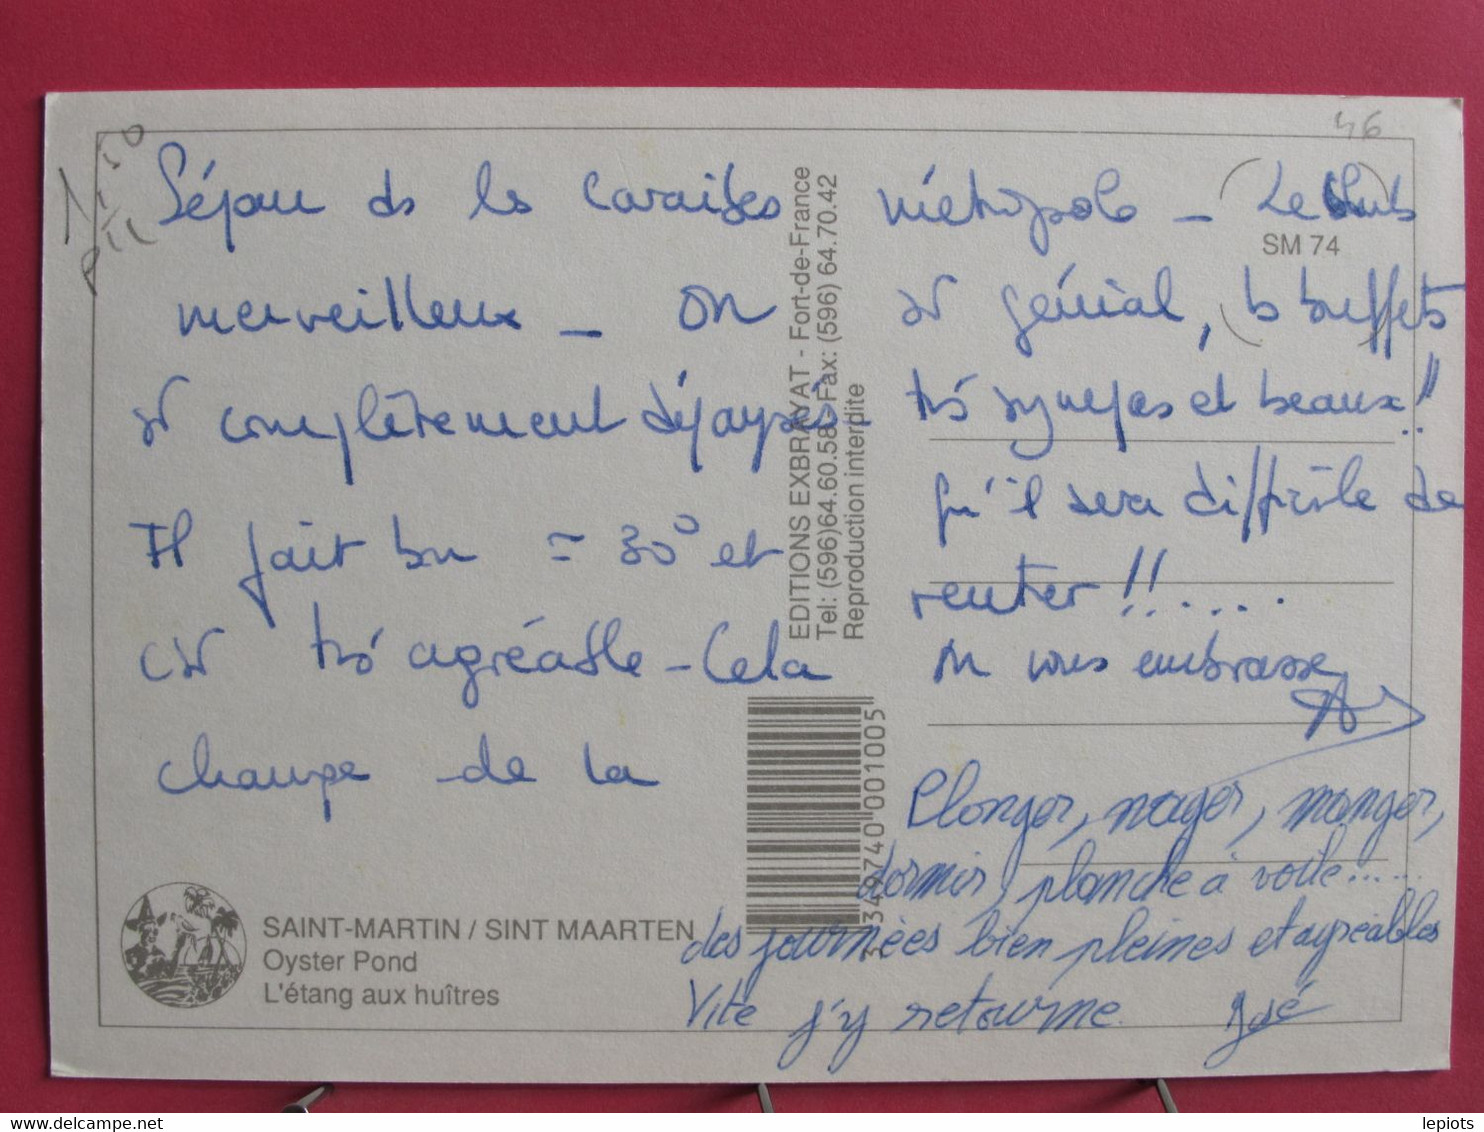 Séjour ds les Caraïbes
merveilleux - On
est complètement dépaysé
Il fait bon = 30° et
c'est très agréable - Cela
change de la
métropole - Le Club
est génial, les buffets
très sympas et beaux!!
qu'il sera difficile de
rentrer !!.....
On vous embrasse
Plonger, nager, manger,
dormir, planche à voile......
des journées bien pleines et agréables
Vite j'y retourne. José
46
SM 74
EDITIONS EXBRAYAT - Fort-de-France
Tel: (596)64.60.58 Fax: (596) 64.70.42
Reproduction interdite
3 349740 001005
SAINT-MARTIN / SINT MAARTEN
Oyster Pond
L'étang aux huîtres
lepiots